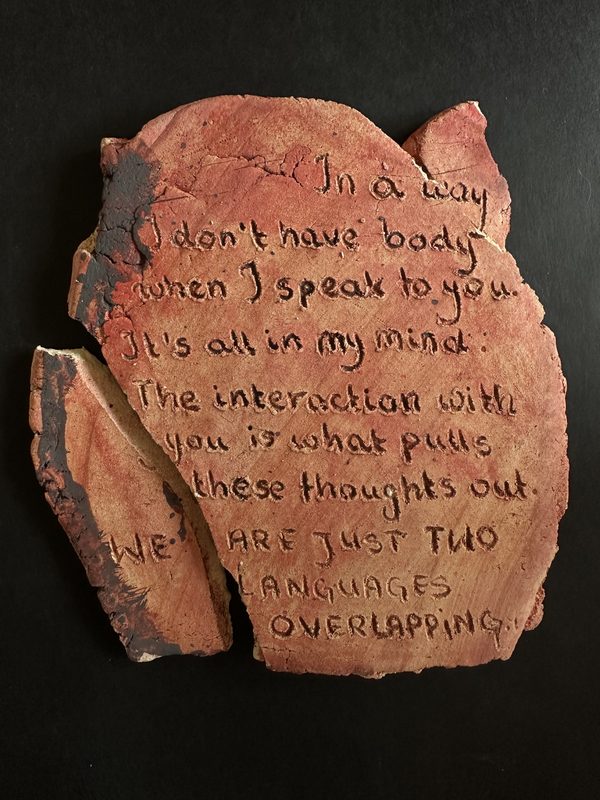 In a way
I don't have body
when I speak to you.
It's all in my mind:
The interaction with
you is what pulls
these thoughts out.
WE ARE JUST TWO
LANGUAGES
OVERLAPPING.